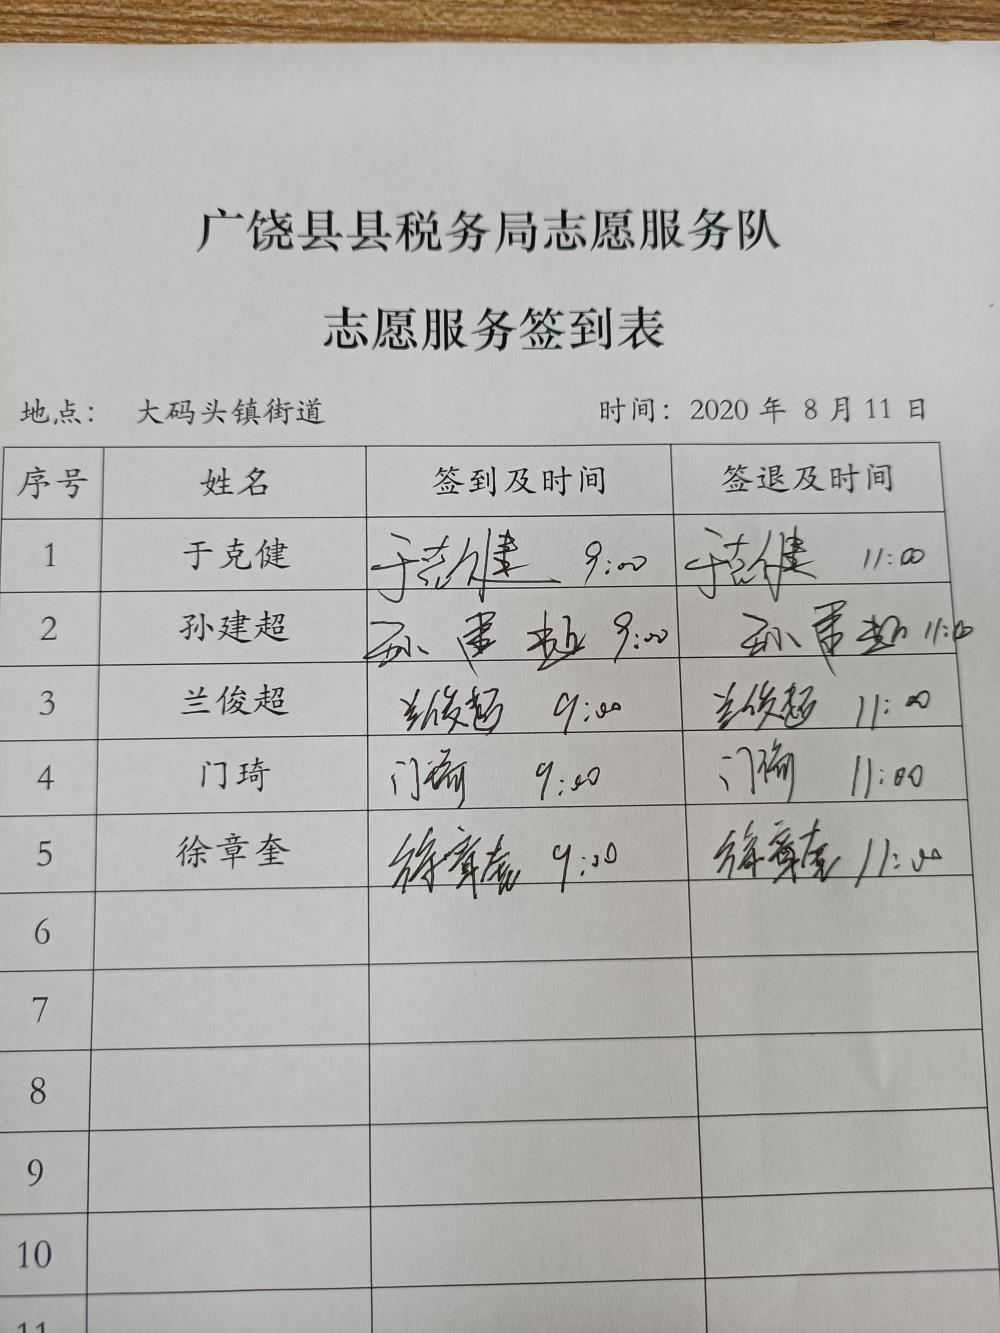 广饶县县税务局志愿服务队
志愿服务签到表
地点： 大码头镇街道 时间：2020 年 8 月 11 日
序号 姓名 签到及时间 签退及时间
1 于克健 于克健 9:00 于克健 11:00
2 孙建超 孙建超 9:00 孙建超 11:00
3 兰俊超 兰俊超 9:00 兰俊超 11:00
4 门琦 门琦 9:00 门琦 11:00
5 徐章奎 徐章奎 9:00 徐章奎 11:00
6
7
8
9
10
11